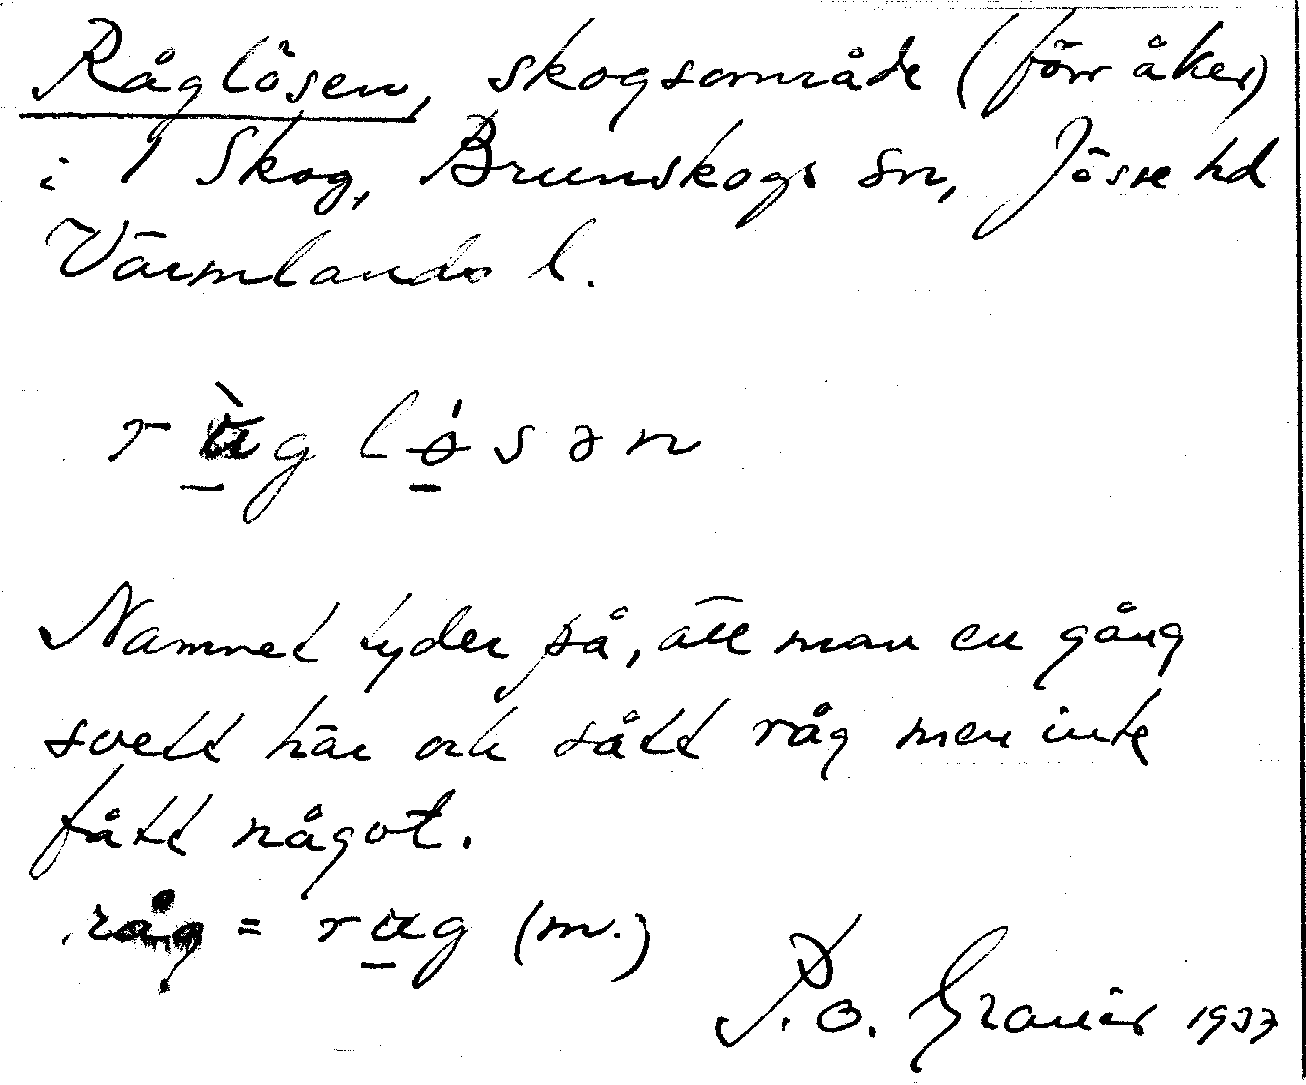 Råglösen, skogsområde (förr åker)
i 1 Skog, Brunskogs sn, Jösse hd
Värmlands l.
råg = (m.)
Namnet tyder på, att man en gång
svett här och sått råg men inte
fått något.
P. O. Granér 1937